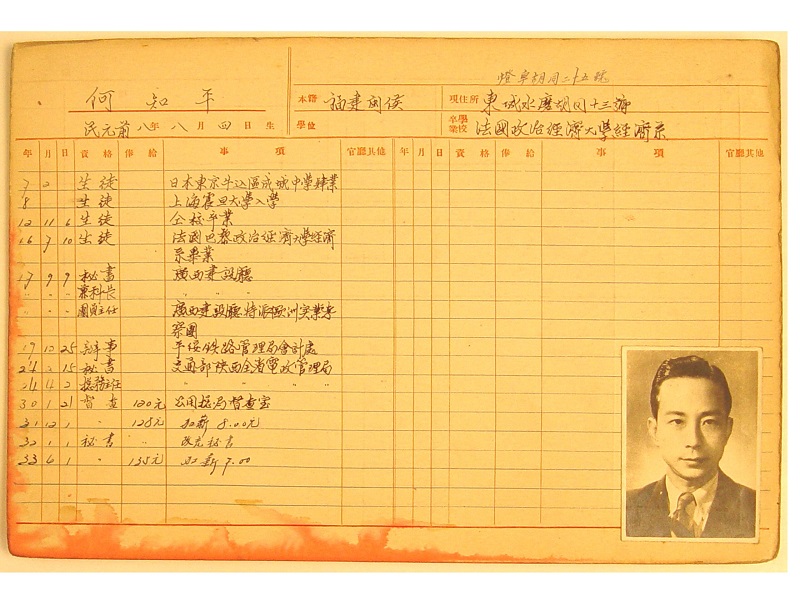 燈草胡同二十五號
何知平
本籍 福建閩侯
現住所 東城水磨胡同十三號
民元前八年八月四日生
學位
學卒校業 法國政治經濟大學經濟系
年 月 日 資格 俸給 事項 官廳其他 年 月 日 資格 俸給 事項 官廳其他
7 2 生徒 日本東京牛込區成城中學肄業
8 生徒 上海震旦大學入學
12 11 6 生徒 仝校卒業
16 7 10 生徒 法國巴黎政治經濟大學經濟
系畢業
17 9 9 秘書 廣西建設廳
〃 〃 〃 兼科長 〃 〃
〃 〃 〃 主任 廣西建設廳特派歐洲实業考
察團
19 12 25 辦事 平绥铁路管理局會計處
24 2 15 秘書 交通部陕西全省電政管理局
24 4 2 總務主任 〃 〃
30 1 21 督查 120元 公用總局督查室
31 12 1 〃 128元 加薪 8.00元
32 1 1 秘書 〃 改充秘書
33 6 1 〃 135元 加薪 7.00